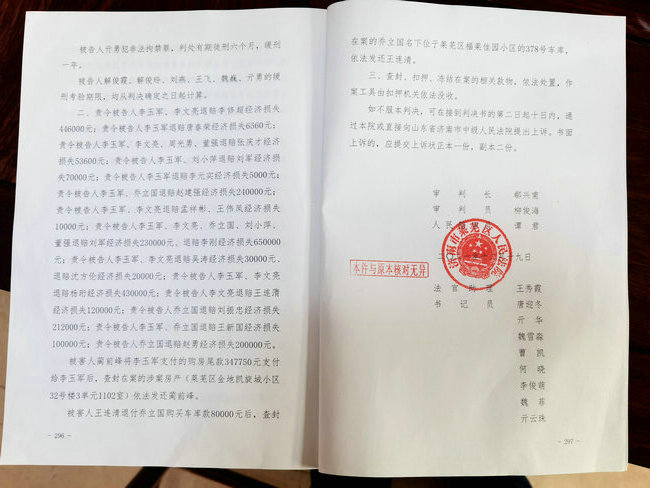 被告人亓勇犯非法拘禁罪，判处有期徒刑六个月，缓刑
一年。
被告人解俊霞、解俊玲、刘燕、王飞、魏巍、亓勇的缓
刑考验期限，均从判决确定之日起计算。
二、责令被告人李玉军、李文亮退赔李修超经济损失
446000元；责令被告人李玉军退赔唐春荣经济损失6560元；
责令被告人李玉军、李文亮、周光勇、董强退赔张庆才经济
损失53600元；责令被告人李玉军、刘小萍退赔刘军经济损失
70000元；责令被告人李玉军退赔李元实经济损失5000元；责
令被告人李玉军、乔立国退赔赵建强经济损失240000元；
责令被告人李玉军、李文亮退赔孟祥彬、王伟凤经济损失
10000元；责令被告人李玉军、李文亮、乔立国、刘小萍、
董强退赔刘军经济损失230000元、退赔李刚经济损失650000
元；责令被告人李玉军、李文亮退赔吴涛经济损失30000元、
退赔沈方化经济损失20000元；责令被告人李玉军、李文亮
退赔杨珩经济损失430000元；责令被告人李文亮退赔王连清
经济损失120000元；责令被告人乔立国退赔刘振忠经济损失
212000元；责令被告人乔立国退赔王新国经济损失
100000元；责令被告人乔立国退赔赵勇经济损失200000元。
被害人蔺前峰将李玉军支付的购房尾款347750元支付
给李玉军后，查封在案的涉案房产（莱芜区金地凯旋城小区
32号楼3单元1102室）依法发还蔺前峰。
被害人王连清退付乔立国购买车库款80000元后，查封
- 296 -
在案的乔立国名下位于莱芜区福莱佳园小区的378号车库，
依法发还王连清。
三、查封、扣押、冻结在案的相关款物，依法处置，作
案工具由扣押机关依法没收。
如不服本判决，可在接到判决书的第二日起十日内，通
过本院或直接向山东省济南市中级人民法院提出上诉。书面
上诉的，应提交上诉状正本一份，副本二份。
审 判 长 郗兴甫
审 判 员 柳俊海
人民 谭 君
济南市莱芜区人民法院
十九日
本件与原本核对无异
法官助理 王秀霞
书 记 员 唐迎冬
亓 华
魏雪淼
曹 凯
何 晓
李俊萌
魏 菲
亓云珠
- 297 -